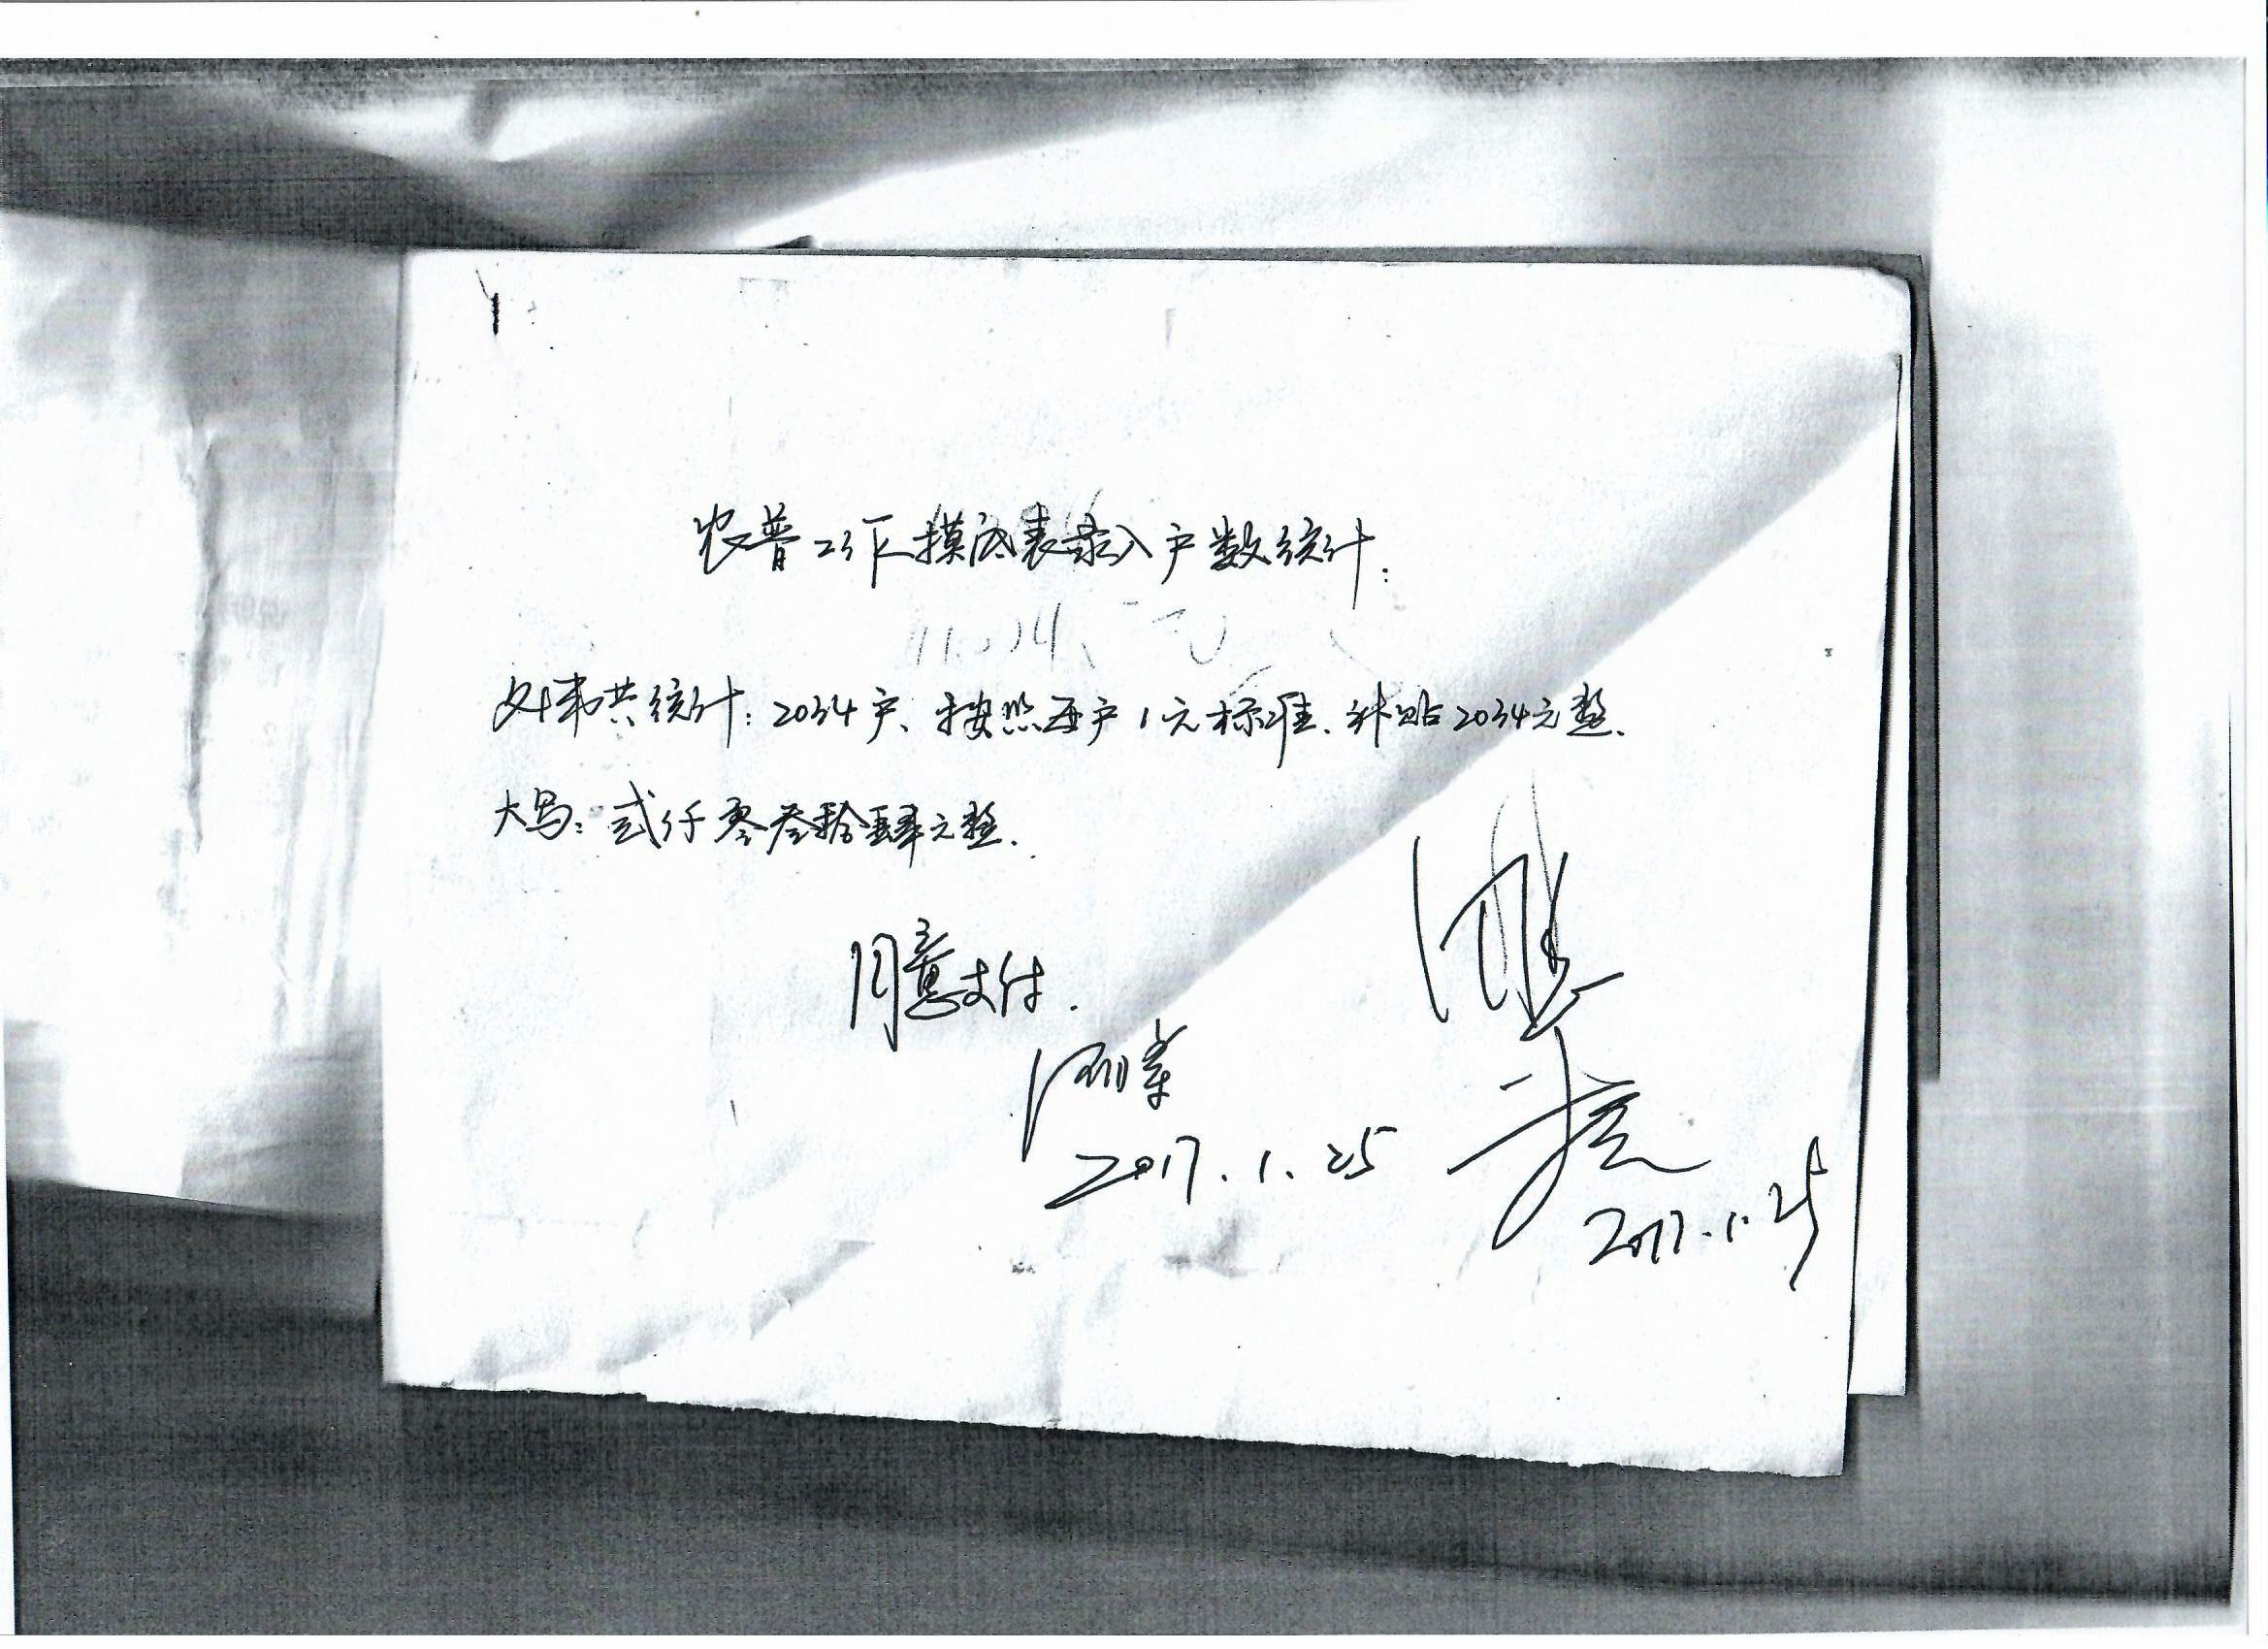 农普工作摸底表录入户数统计:
共统计:2034户、按照每户1元标准.补贴2034元整.
大写:贰仟零叁拾肆元整.
同意支付.
2017.1.25
2017.1.25